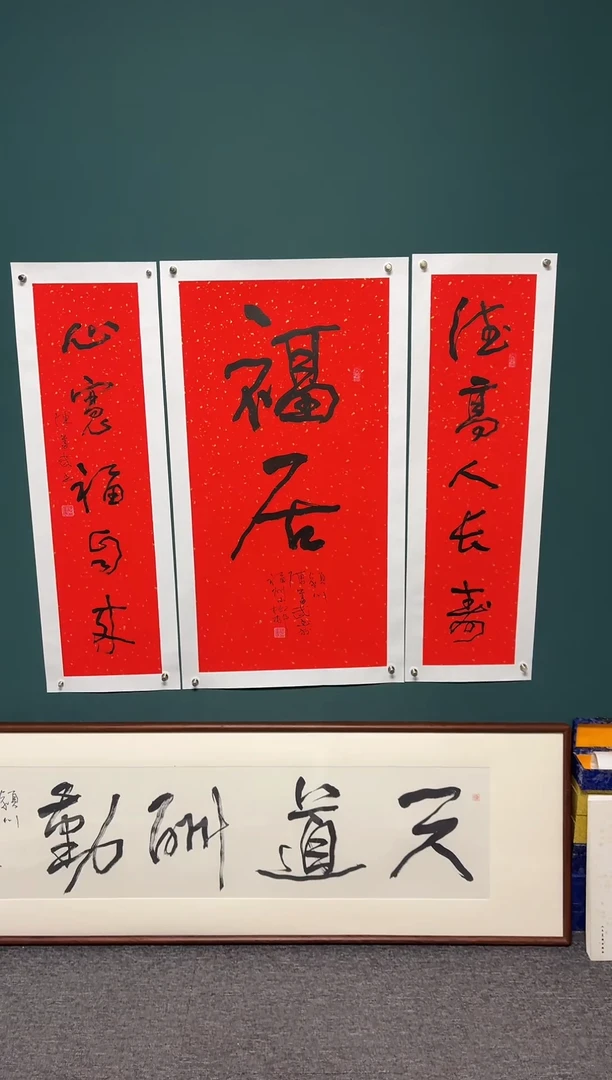 德高人长寿
福居
心寬福自来
天道酬勤
潁川